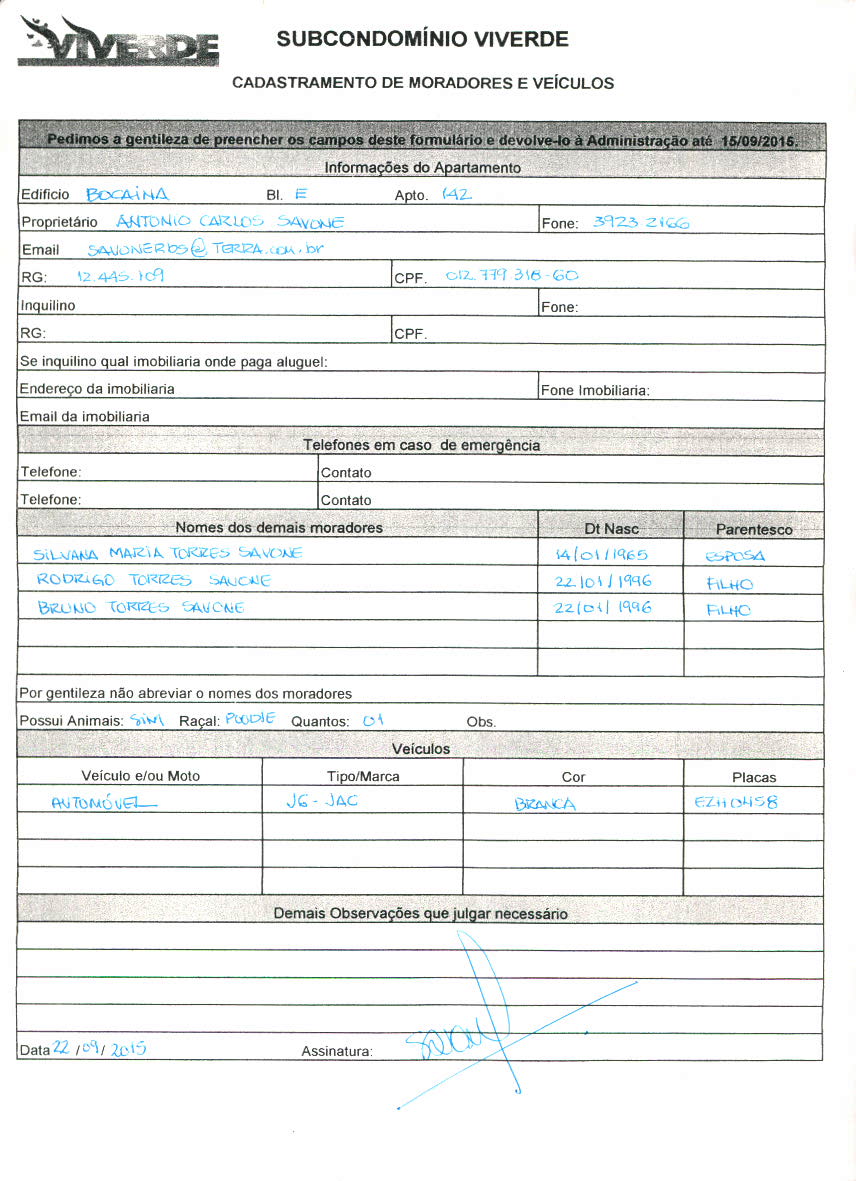 VIVERDE
SUBCONDOMÍNIO VIVERDE
CADASTRAMENTO DE MORADORES E VEÍCULOS
Pedimos a gentileza de preencher os campos deste formulário e devolve-lo à Administração até 15/09/2015.
Informações do Apartamento
Edificio BOCAINA Bl. E Apto. 142
Proprietário ANTONIO CARLOS SAVONE Fone: 3923 2166
Email SAVONERDS@TERRA.com.br
RG: 12.445.109 CPF. 012.779 318-60
Inquilino Fone:
RG: CPF.
Se inquilino qual imobiliaria onde paga aluguel:
Endereço da imobiliaria Fone Imobiliaria:
Email da imobiliaria
Telefones em caso de emergência
Telefone: Contato
Telefone: Contato
Nomes dos demais moradores Dt Nasc Parentesco
SILVANA MARIA TORRES SAVONE 14/01/1965 ESPOSA
RODRIGO TORRES SAVONE 22/01/1996 FILHO
BRUNO TORRES SAVONE 22/01/1996 FILHO
Por gentileza não abreviar o nomes dos moradores
Possui Animais: SIM Raçal: POODLE Quantos: 01 Obs.
Veículos
Veículo e/ou Moto Tipo/Marca Cor Placas
AUTOMÓVEL J6 - JAC BRANCA EZH0458
Demais Observações que julgar necessário
Data 22 / 09 / 2015 Assinatura: